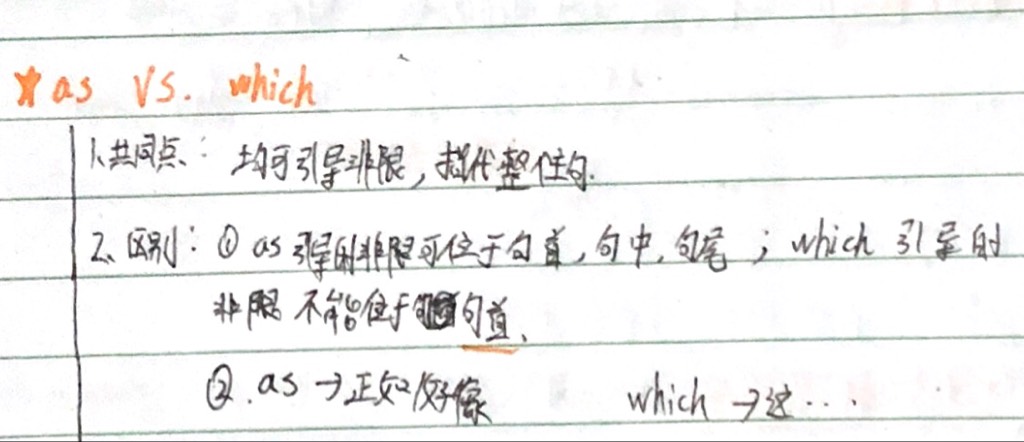 ★ as VS. which
1、共同点：均可引导非限，指代整个主句.
2、区别：① as 引导的非限可位于句首，句中，句尾；which 引导的
非限 不能位于句首、
②. as → 正如/好像 which → 这…